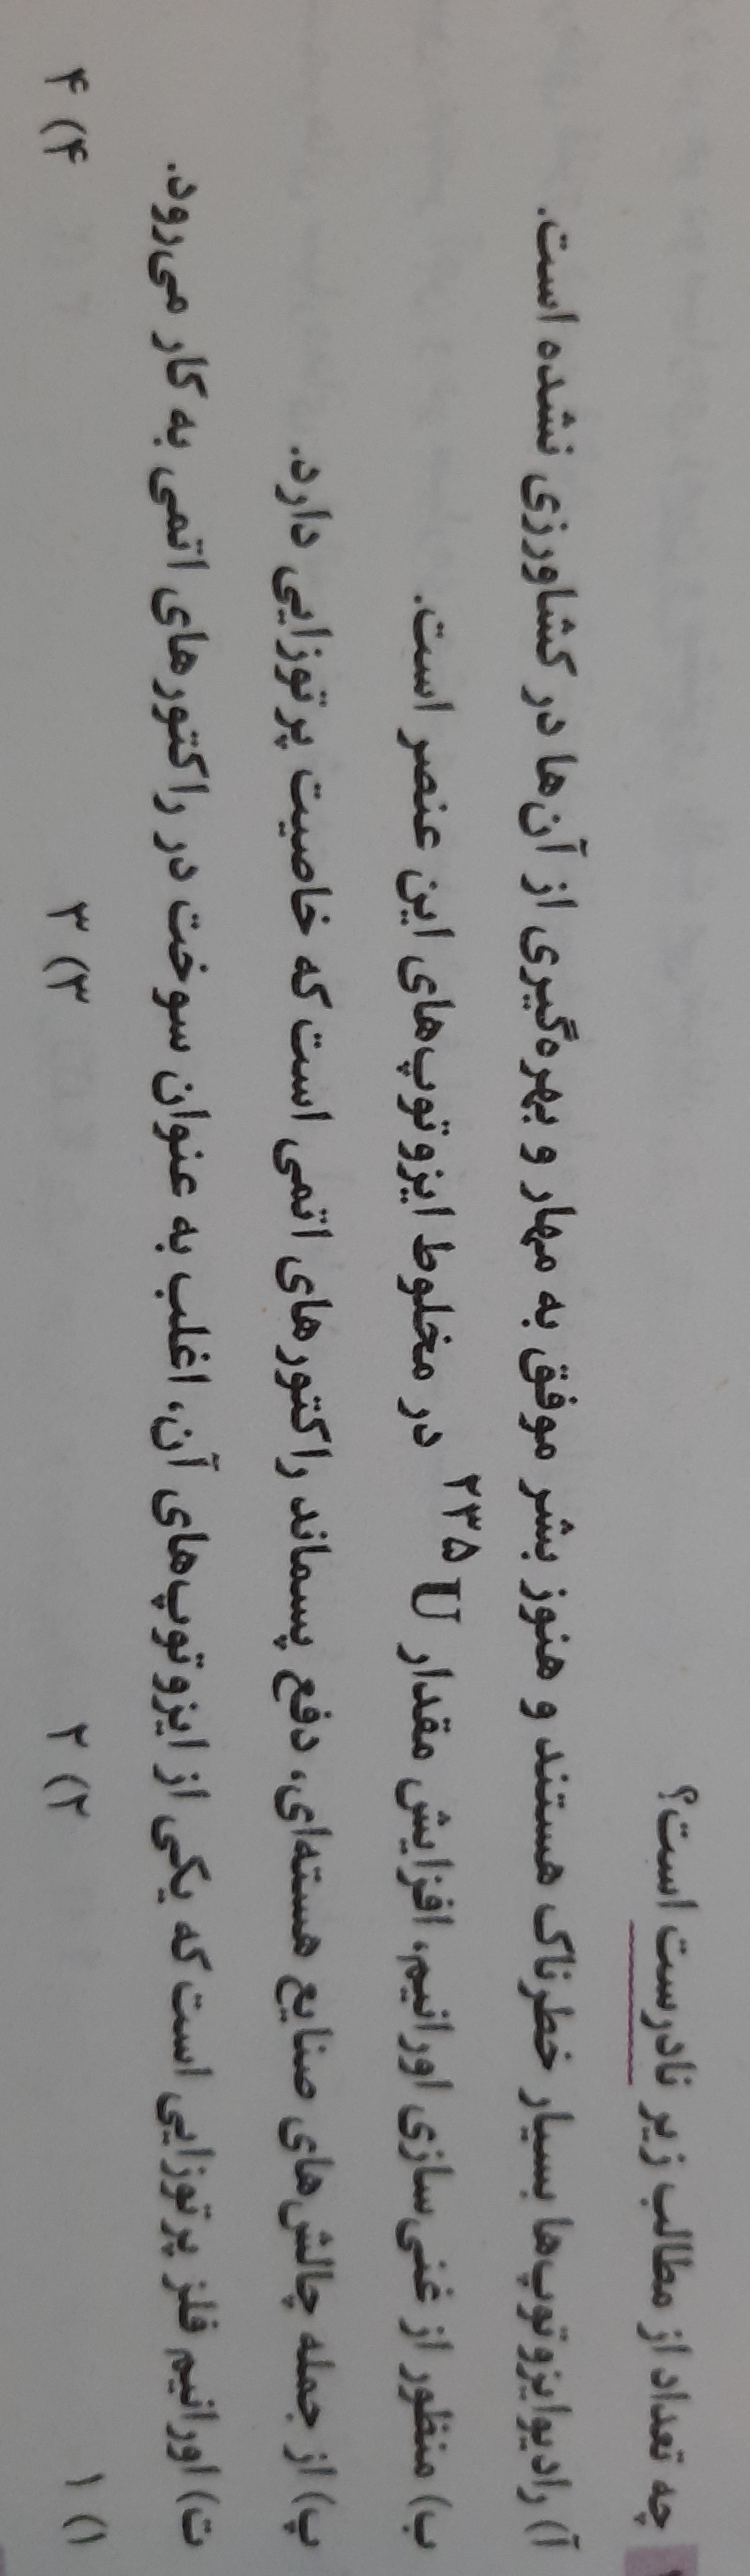 چه تعداد از مطالب زیر نادرست است؟
آ) رادیوایزوتوپ‌ها بسیار خطرناک هستند و هنوز بشر موفق به مهار و بهره‌گیری از آن‌ها در کشاورزی نشده است.
ب) منظور از غنی‌سازی اورانیم، افزایش مقدار ²³⁵U در مخلوط ایزوتوپ‌های این عنصر است.
پ) از جمله چالش‌های صنایع هسته‌ای، دفع پسماند راکتورهای اتمی است که خاصیت پرتوزایی دارد.
ت) اورانیم فلز پرتوزایی است که یکی از ایزوتوپ‌های آن، اغلب به عنوان سوخت در راکتورهای اتمی به کار می‌رود.
۱) ۱ ۲) ۲ ۳) ۳ ۴) ۴